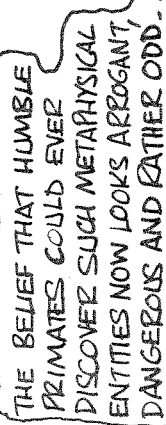 THE BELIEF THAT HUMBLE
PRIMATES COULD EVER
DISCOVER SUCH METAPHYSICAL
ENTITIES NOW LOOKS ARROGANT,
DANGEROUS AND RATHER ODD.